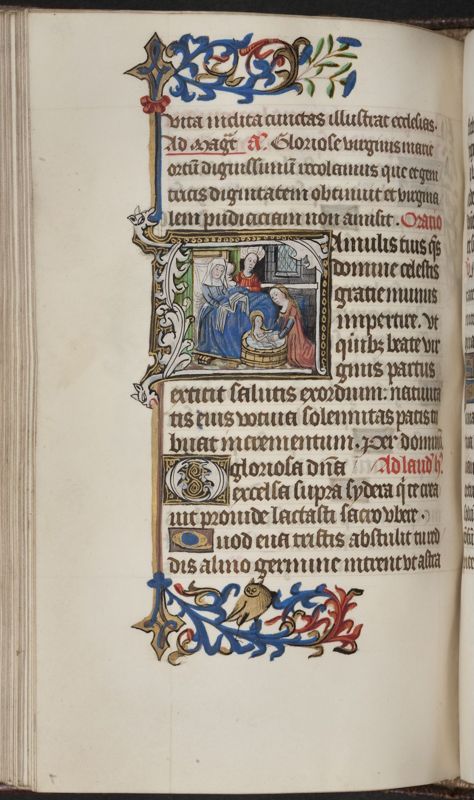 vita inclita cunctas illustrat ecclesias.
Ad Mag̃t. añ. Gloriose virginis marie
ortũ dignissimũ recolamus que et geni
tricis dignitatem obtinuit et virgina
lem pudiciciam non amisit. Oratio
Famulis tuis q̃s
domine celestis
gratie munus
impertire. vt
quibꝫ beate vir
ginis partus
extitit salutis exordium: natiuita
tis eius votiua solemnitas pacis tri
buat incrementum. Per dominũ
O gloriosa dñã Ad laud' h'.
excelsa supra sydera q̃ te crea
uit prouide lactasti sacro vbere.
Quod eua tristis abstulit tu red
dis almo germine intrent vt astra